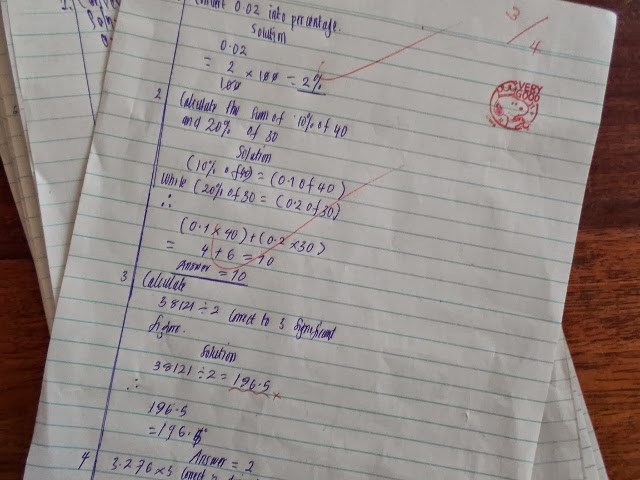 Convert 0.02 into percentage.
Solution
0.02
= 2/100 × 100 = 2%
3/4
VERY GOOD
2 Calculate the sum of 10% of 40
and 20% of 30
Solution
(10% of 40) = (0.1 of 40)
while (20% of 30 = (0.2 of 30)
∴
(0.1 × 40) + (0.2 × 30)
= 4 + 6 = 10
Answer = 10
3 Calculate
38121 ÷ 2 Correct to 3 Significant
figure.
Solution
38121 ÷ 2 = 196.5
∴
196.5
= 196.
Answer = 2
4 3.276 × 3 Correct